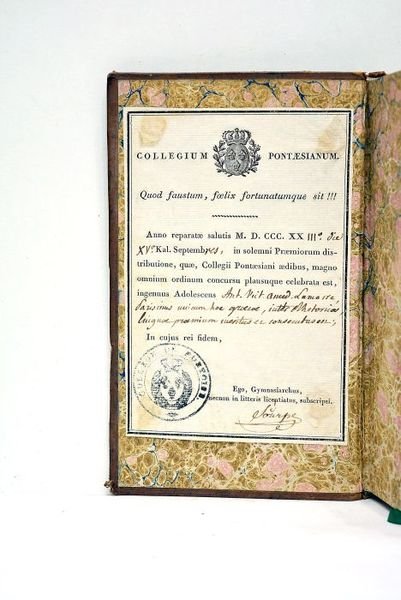 COLLEGIUM PONTÆSIANUM.
Quod faustum, fœlix fortunatumque sit !!!
Anno reparatæ salutis M. D. CCC. XX IIIº. die
XVº. Kal. Septembres, in solemni Præmiorum dis-
tributione, quæ, Collegii Pontæsiani ædibus, magno
omnium ordinum concursu plausuque celebrata est,
ingenuus Adolescens Ant. Vict. amed. Lamorre
parisinus unicum hoc græcæ, inter Rhetoricos
linguæ præmium meritus et consecutus est.
In cujus rei fidem,
COLLEGE DE PONTOISE
Ego, Gymnasiarchus,
necnon in litteris licentiatus, subscripsi.